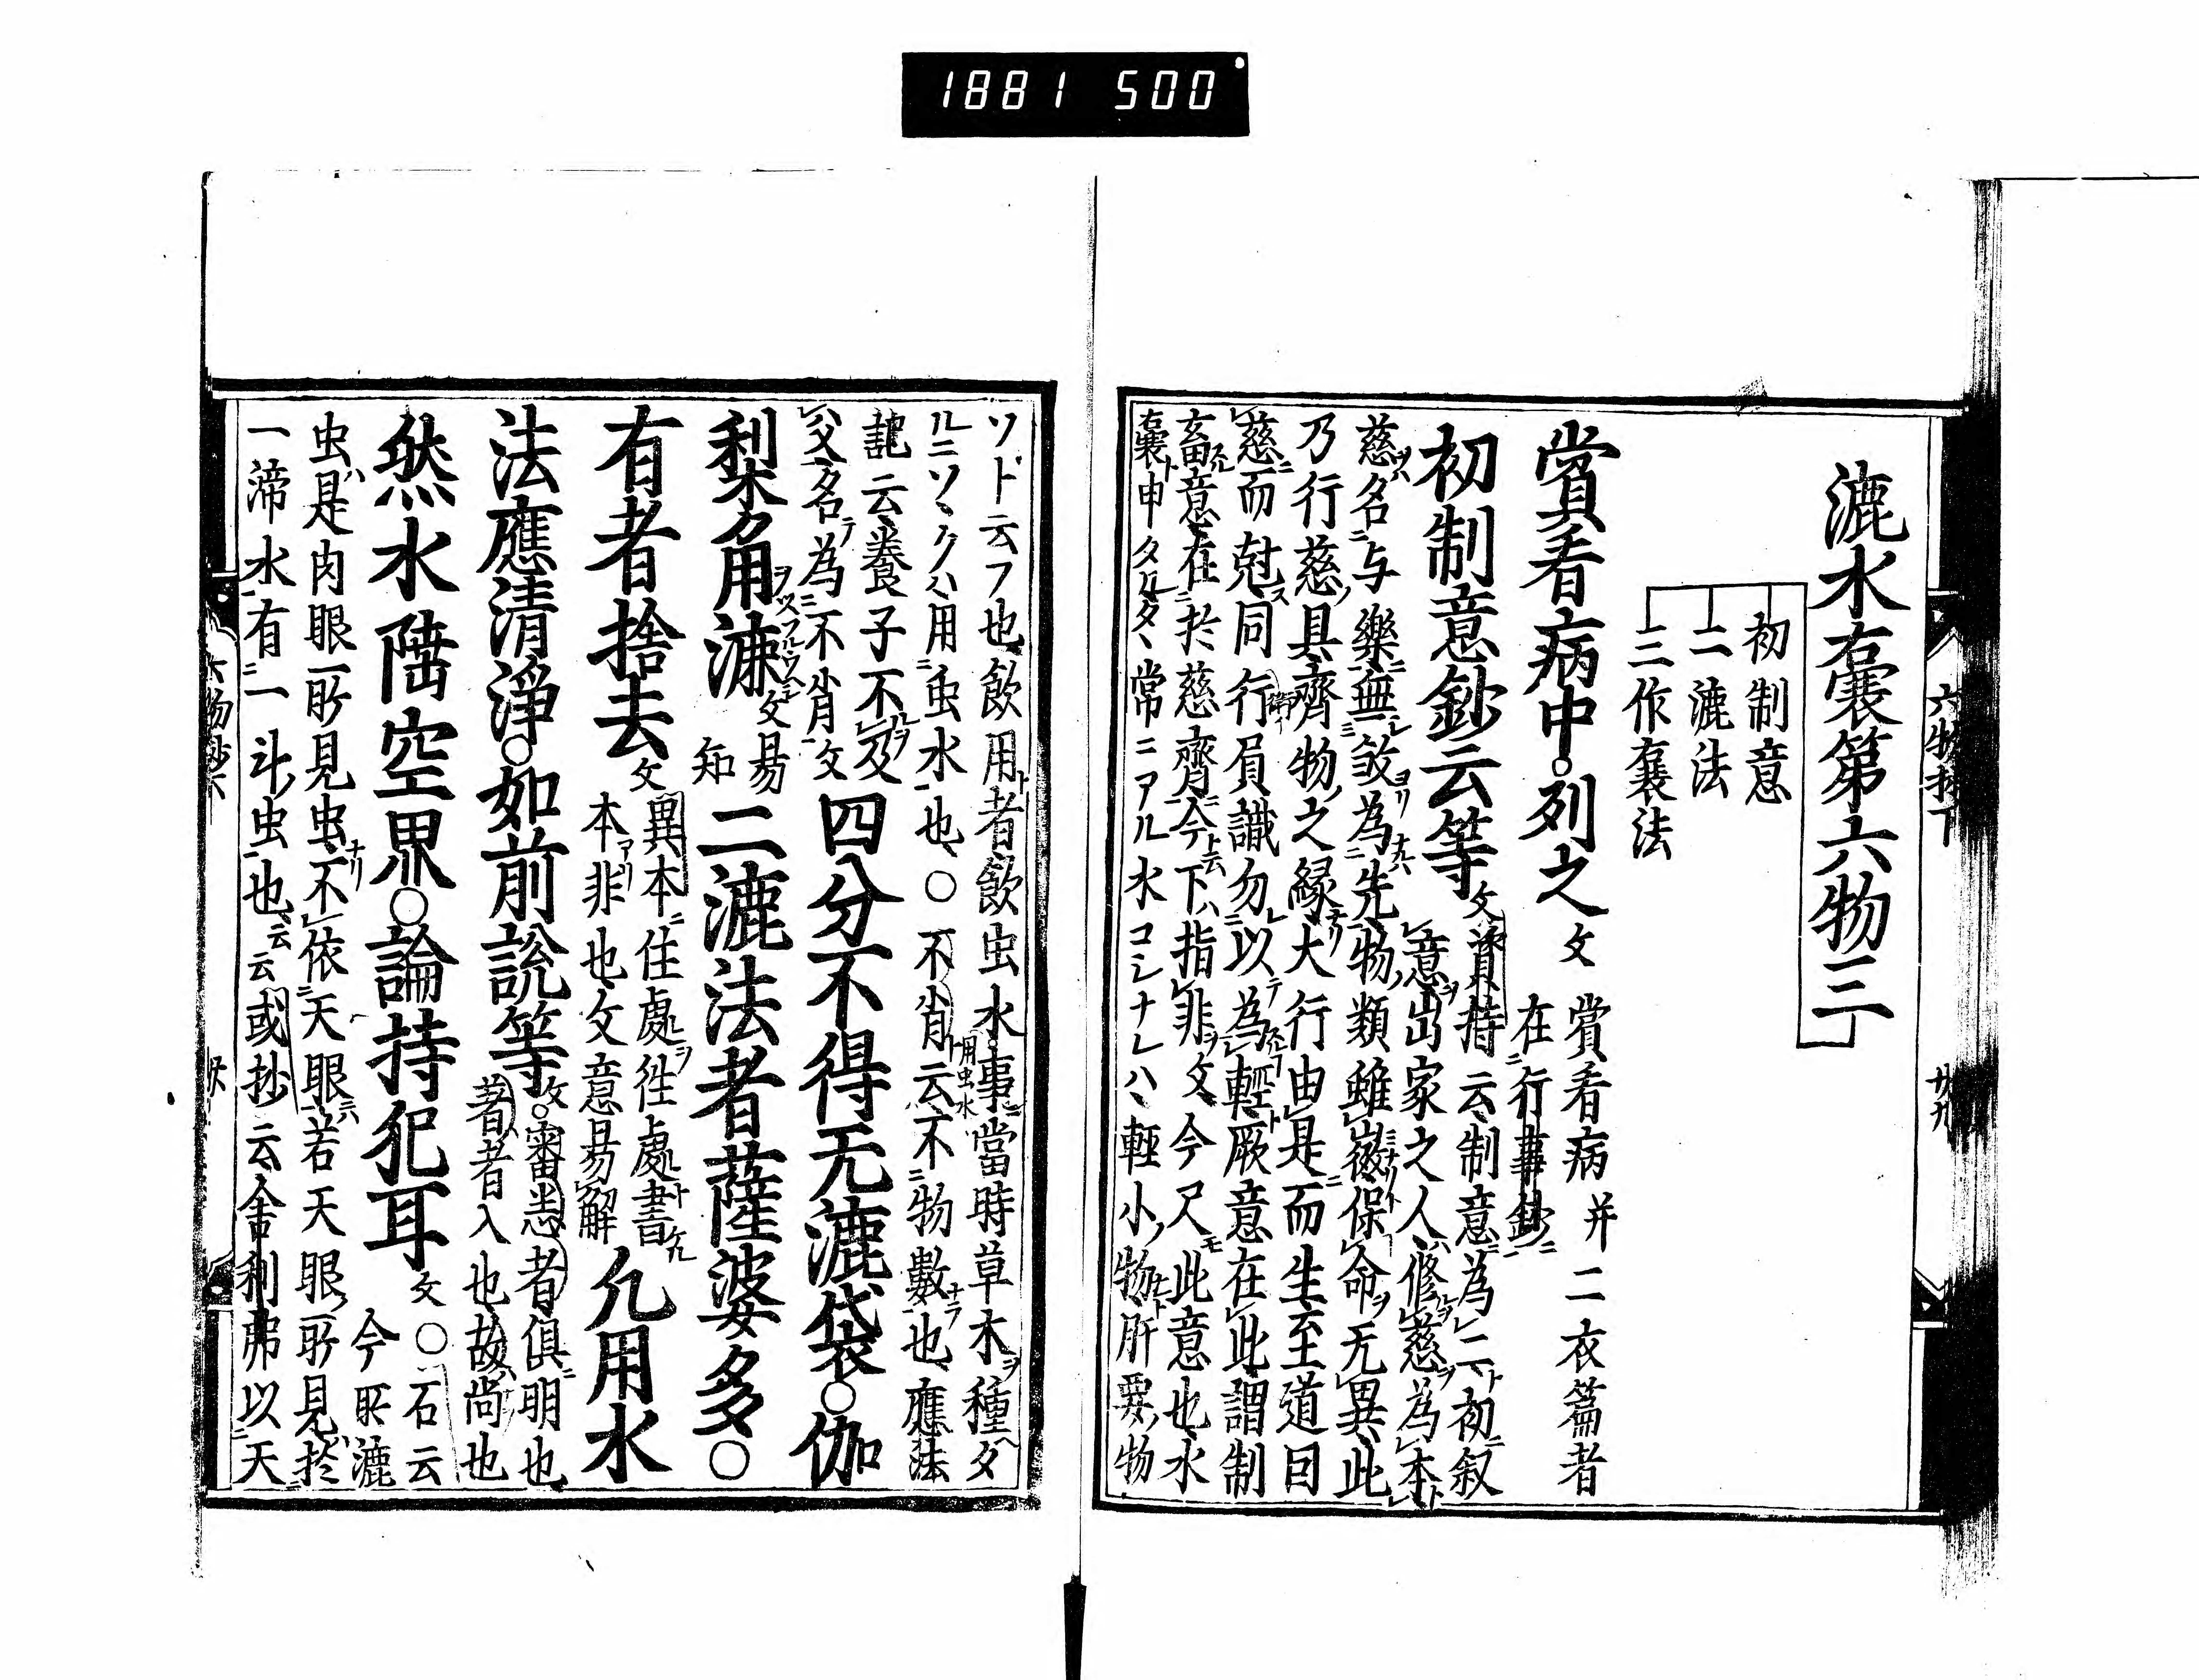 1881 500
漉水囊第六物三
初制意
二漉法
三作囊法
賞看病中列之文 賞看病并二衣篇者
在行事鈔
初制意鈔云等文 資持云制意為二初叙
意出家之人修慈為本
慈名与樂無殺為先物類雖微保命无異此
乃行慈具齊物之緣大行由是而生至道因
慈而尅同行眉識勿以為輕厥意在此謂制
畜意在於慈齊今下指非文今尺此意也水
囊申タルタ常ニアル水コシナレハ輕小物肝要物
六物抄下
廿九
ソト云フ也飲用者飲虫水事當時草木種タ
ルニソヽクハ用虫水也○不肖云不物數也應法
用虫水
記云養子不及
父名為不肖文四分不得无漉袋○伽
梨角用漉文易
知二漉法者薩婆多○
有者捨去文異本住處往處書
本非也文意易解凡用水
法應清淨○如前說等文審悉者俱明也
著者入也故尚也
然水陸空界○論持犯耳文○石云
今所漉
虫是肉眼所見虫不依天眼若天眼所見於
一渧水有一斗虫也云云或抄云舍利弗以天